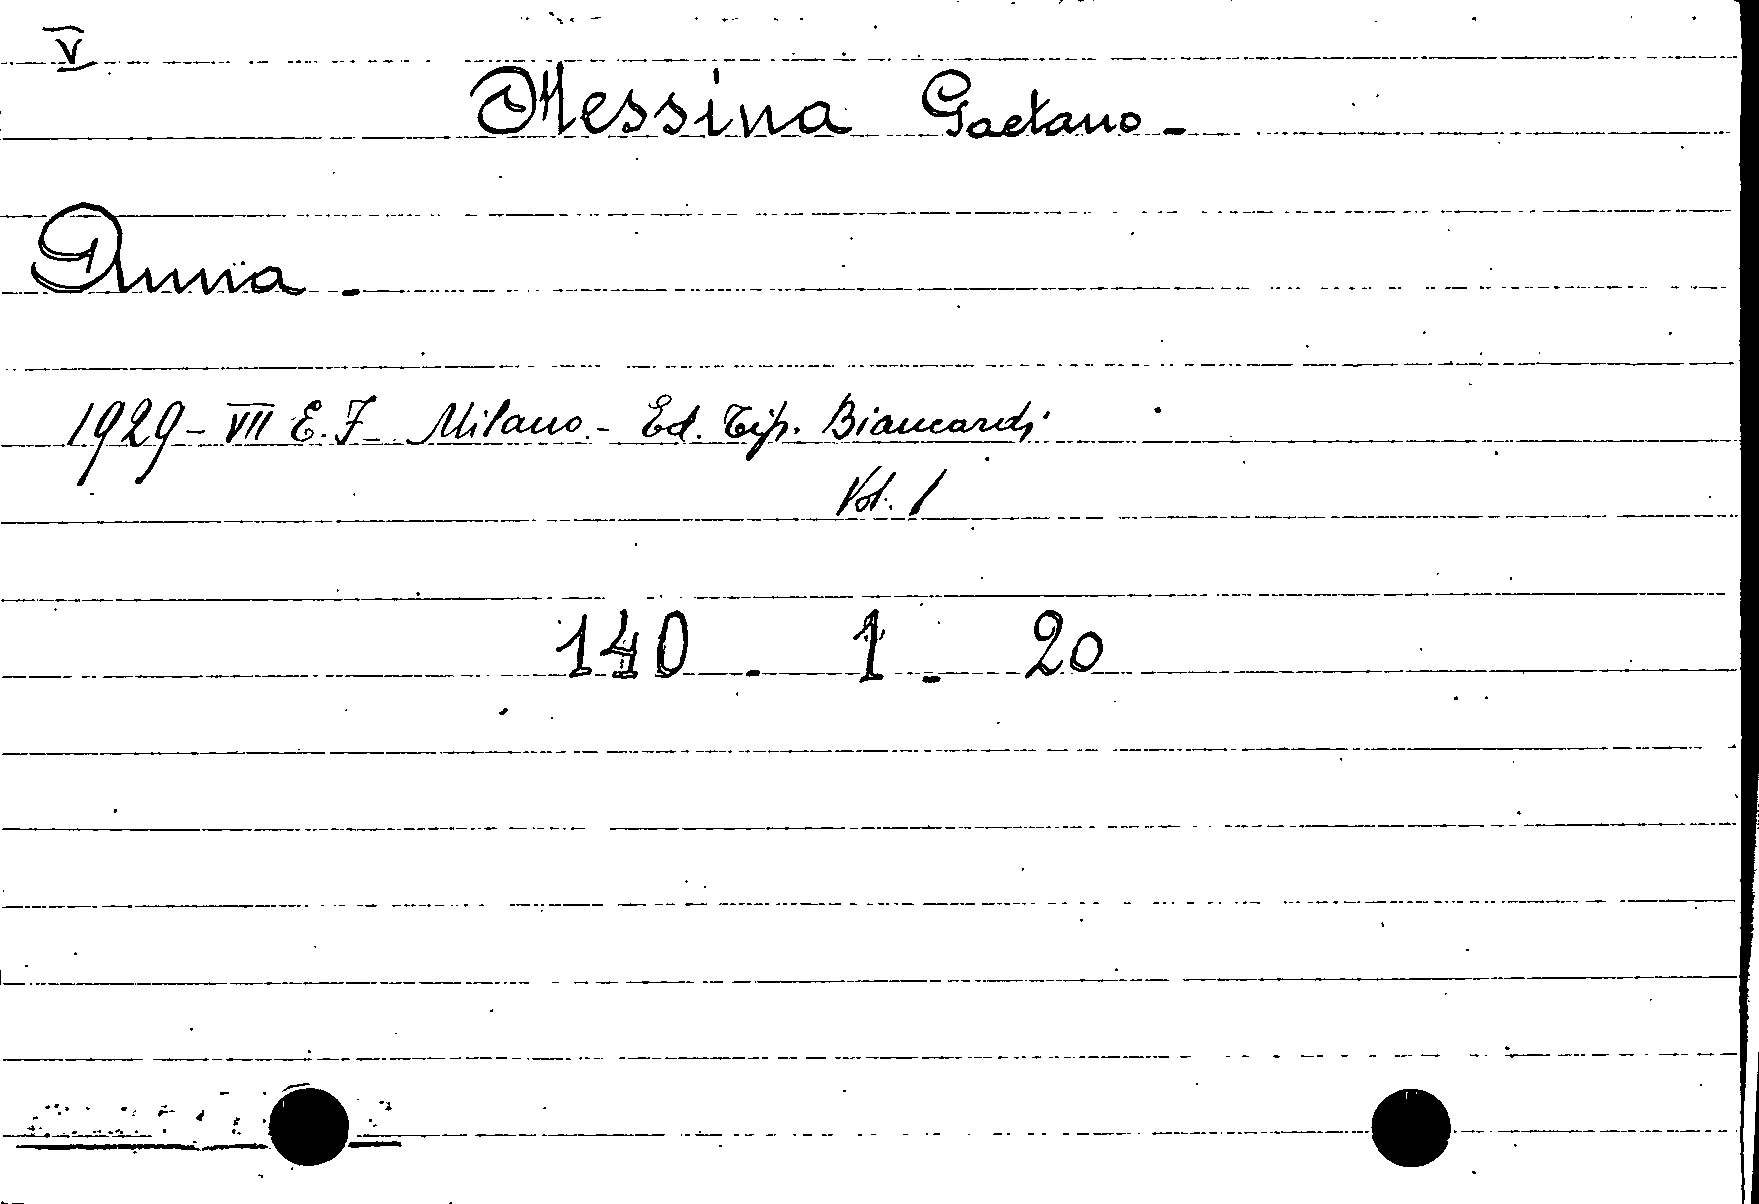 V
Messina Gaetano -
Anna -
1929 - VII E. F. Milano - Ed. Tip. Biancardi
Vol. 1
140 - 1 - 20